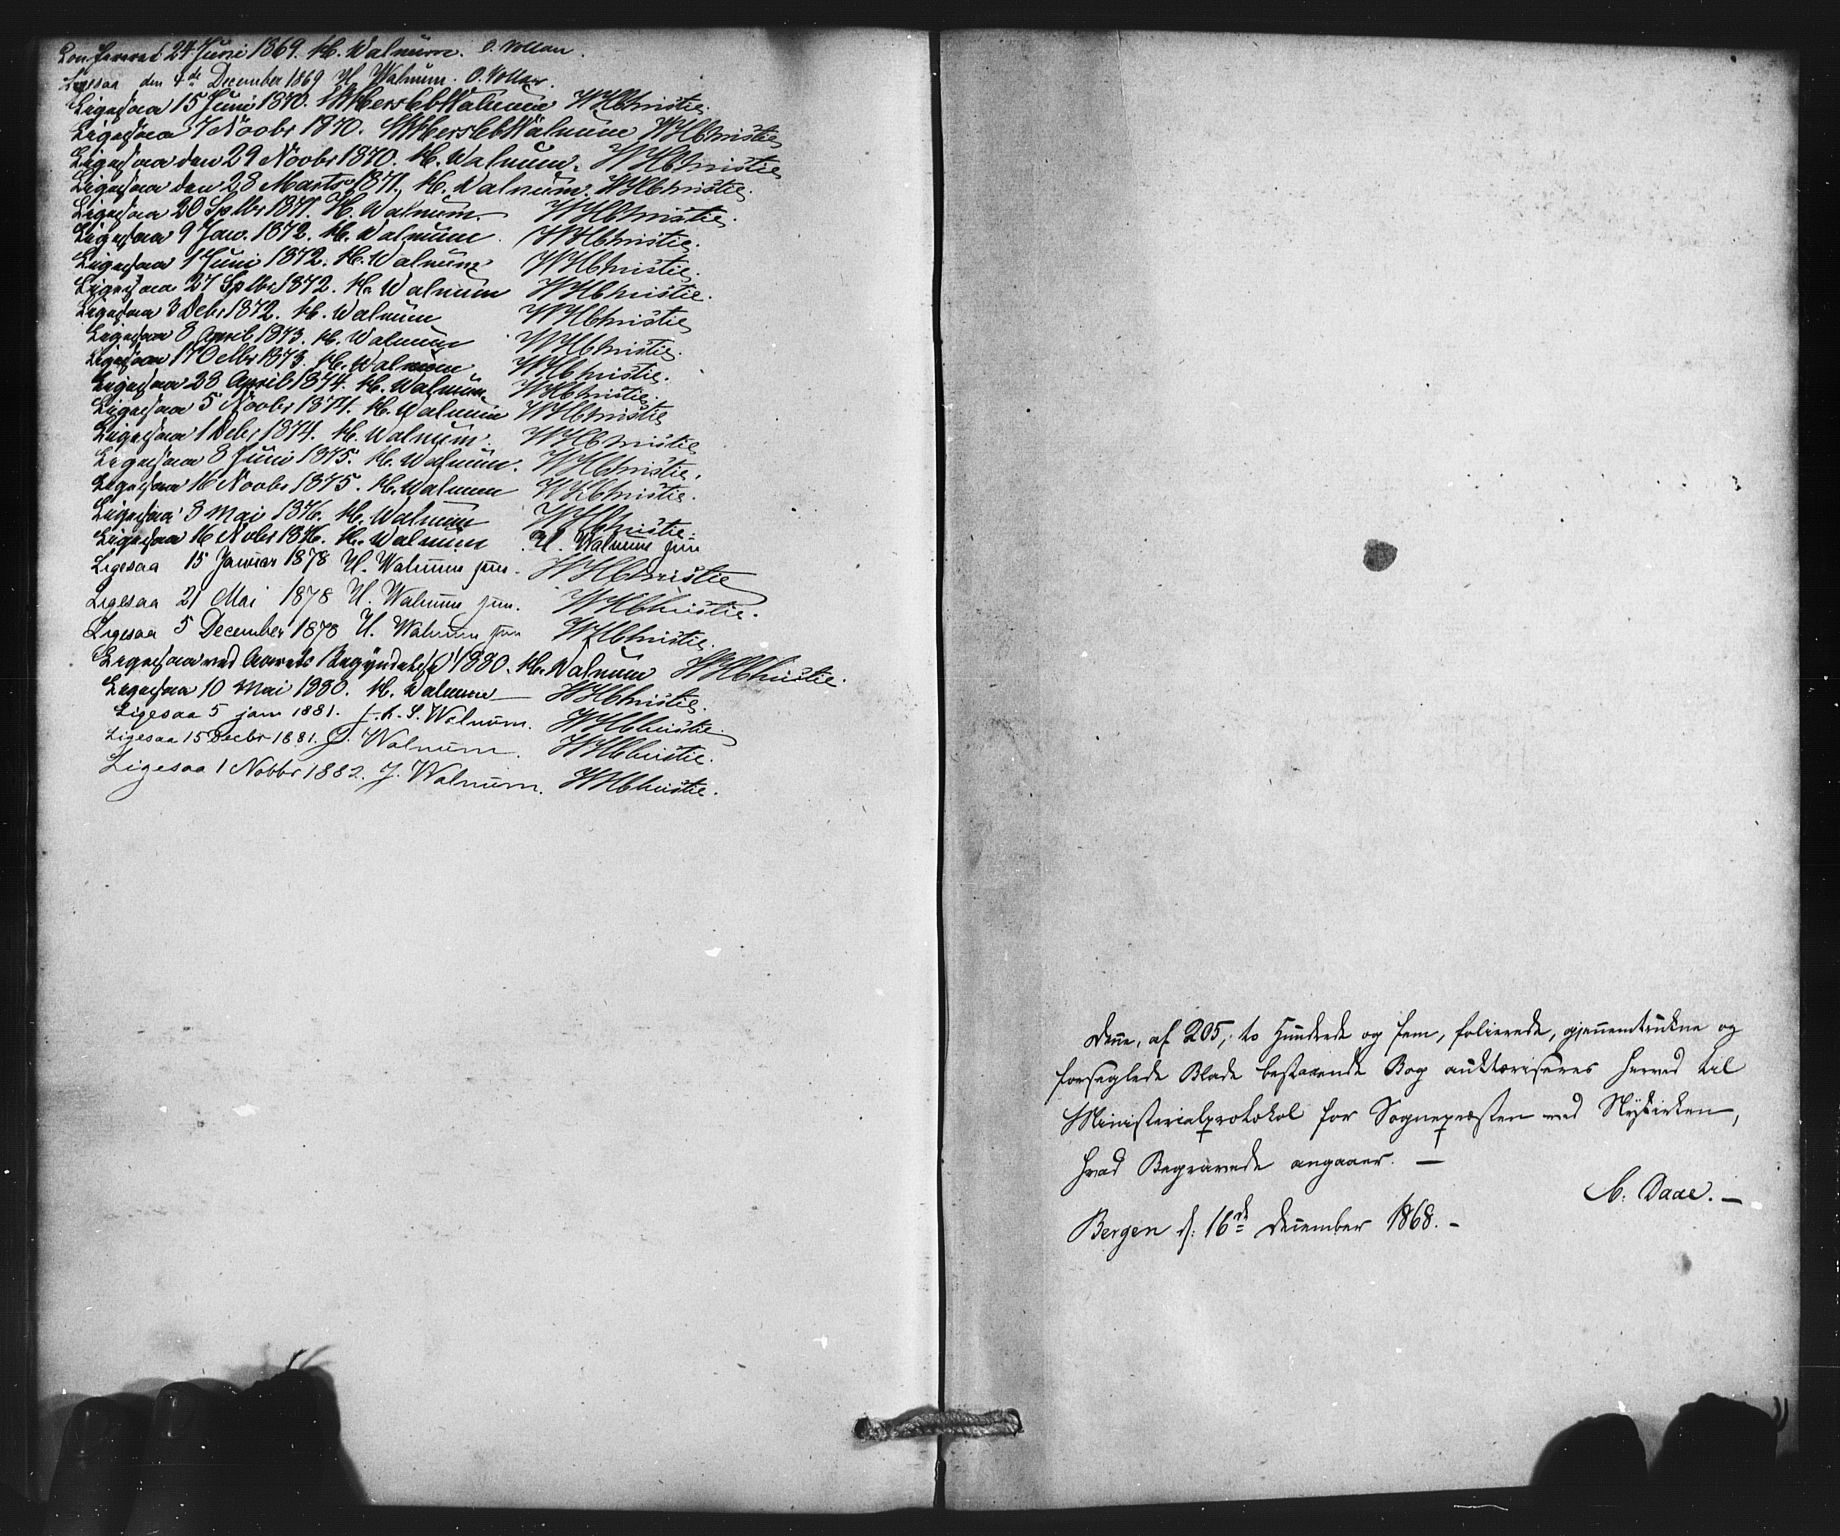 Confereret 24 Juni 1869. H. Walnum. O. Vollan.
Ligesaa den 4de December 1869 H. Walnum. O. Vollan.
Ligesaa 15 Juni 1870. HHerslebWalnum WHChristie.
Ligesaa 7 Novbr 1870. HHerslebWalnum WHChristie
Ligesaa den 29 Novbr 1870. H. Walnum. WHChristie
Ligesaa den 28 Marts 1871. H. Walnum. WHChristie.
Ligesaa 20 Sptbr 1871. H. Walnum. WHChristie.
Ligesaa 9 Jan. 1872. H. Walnum. WHChristie.
Ligesaa 1 Juni 1872. H. Walnum WHChristie.
Ligesaa 27 Sptbr 1872. H. Walnum WHChristie.
Ligesaa 3 Debr 1872. H. Walnum WHChristie
Ligesaa 8 April 1873. H. Walnum WHChristie.
Ligesaa 17 Octbr 1873. H. Walnum WHChristie.
Ligesaa 28 April 1874. H. Walnum. WHChristie.
Ligesaa 5 Novbr 1874. H. Walnum WHChristie
Ligesaa 1 Debr 1874. H. Walnum. WHChristie
Ligesaa 8 Juni 1875. H. Walnum. WHChristie.
Ligesaa 16 Novbr 1875. H. Walnum WHChristie.
Ligesaa 3 Mai 1876. H. Walnum WHChristie.
Ligesaa 16 Nvbr 1876. H. Walnum U. Walnum jun
Ligesaa 15 Januar 1878 U. Walnum jun. WHChristie
Ligesaa 21 Mai 1878 U. Walnum jun. WHChristie.
Ligesaa 5 December 1878 U. Walnum jun WHChristie.
Ligesaa ved Aarets Begyndelse 1880. H. Walnum WHChristie.
Ligesaa 10 Mai 1880. H. Walnum WHChristie.
Ligesaa 5 jan 1881. J. A. S. Walnum. WHChristie.
Ligesaa 15 Decbr 1881. J. Walnum. WHChristie.
Ligesaa 1 Nobbr 1882. J. Walnum. WHChristie.
Denne, af 205, to Hundrede og fem, folierede, gjennemtrukne og
forseglede Blade bestaaende Bog auktoriseres herved til
Ministerialprotokol for Sognepræsten ved Nykirken,
hvad Begravede angaaer. —
Bergen d: 16de December 1868. –
C. Daae. —